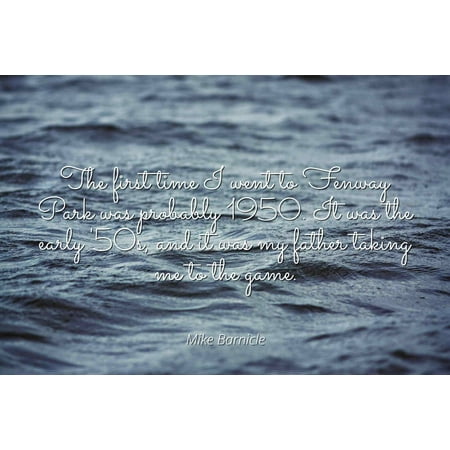 The first time I went to Fenway
Park was probably 1950. It was the
early '50s, and it was my father taking
me to the game.
Mike Barnicle